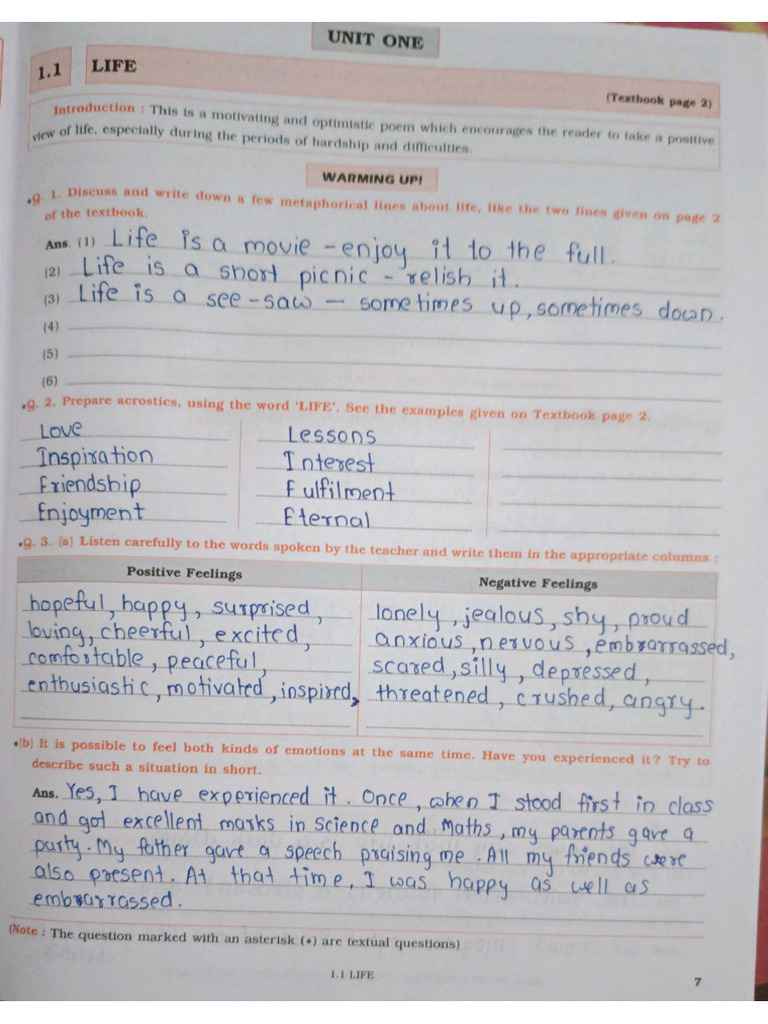 UNIT ONE
1.1 LIFE
(Textbook page 2)
Introduction : This is a motivating and optimistic poem which encourages the reader to take a positive
view of life, especially during the periods of hardship and difficulties.
WARMING UP!
*Q. 1. Discuss and write down a few metaphorical lines about life, like the two lines given on page 2
of the textbook.
Ans. (1) Life is a movie - enjoy it to the full.
(2) Life is a short picnic - relish it.
(3) Life is a see-saw - sometimes up, sometimes down.
(4)
(5)
(6)
*Q. 2. Prepare acrostics, using the word 'LIFE'. See the examples given on Textbook page 2.
Love Lessons
Inspiration Interest
Friendship Fulfilment
Enjoyment Eternal
*Q. 3. (a) Listen carefully to the words spoken by the teacher and write them in the appropriate columns :
Positive Feelings Negative Feelings
hopeful, happy, surprised, lonely, jealous, shy, proud
loving, cheerful, excited, anxious, nervous, embrarrassed,
comfortable, peaceful, scared, silly, depressed,
enthusiastic, motivated, inspired, threatened, crushed, angry.
*(b) It is possible to feel both kinds of emotions at the same time. Have you experienced it? Try to
describe such a situation in short.
Ans. Yes, I have experienced it. Once, when I stood first in class
and got excellent marks in Science and Maths, my parents gave a
party. My father gave a speech praising me. All my friends were
also present. At that time, I was happy as well as
embrarrassed.
(Note : The question marked with an asterisk (*) are textual questions)
1.1 LIFE
7